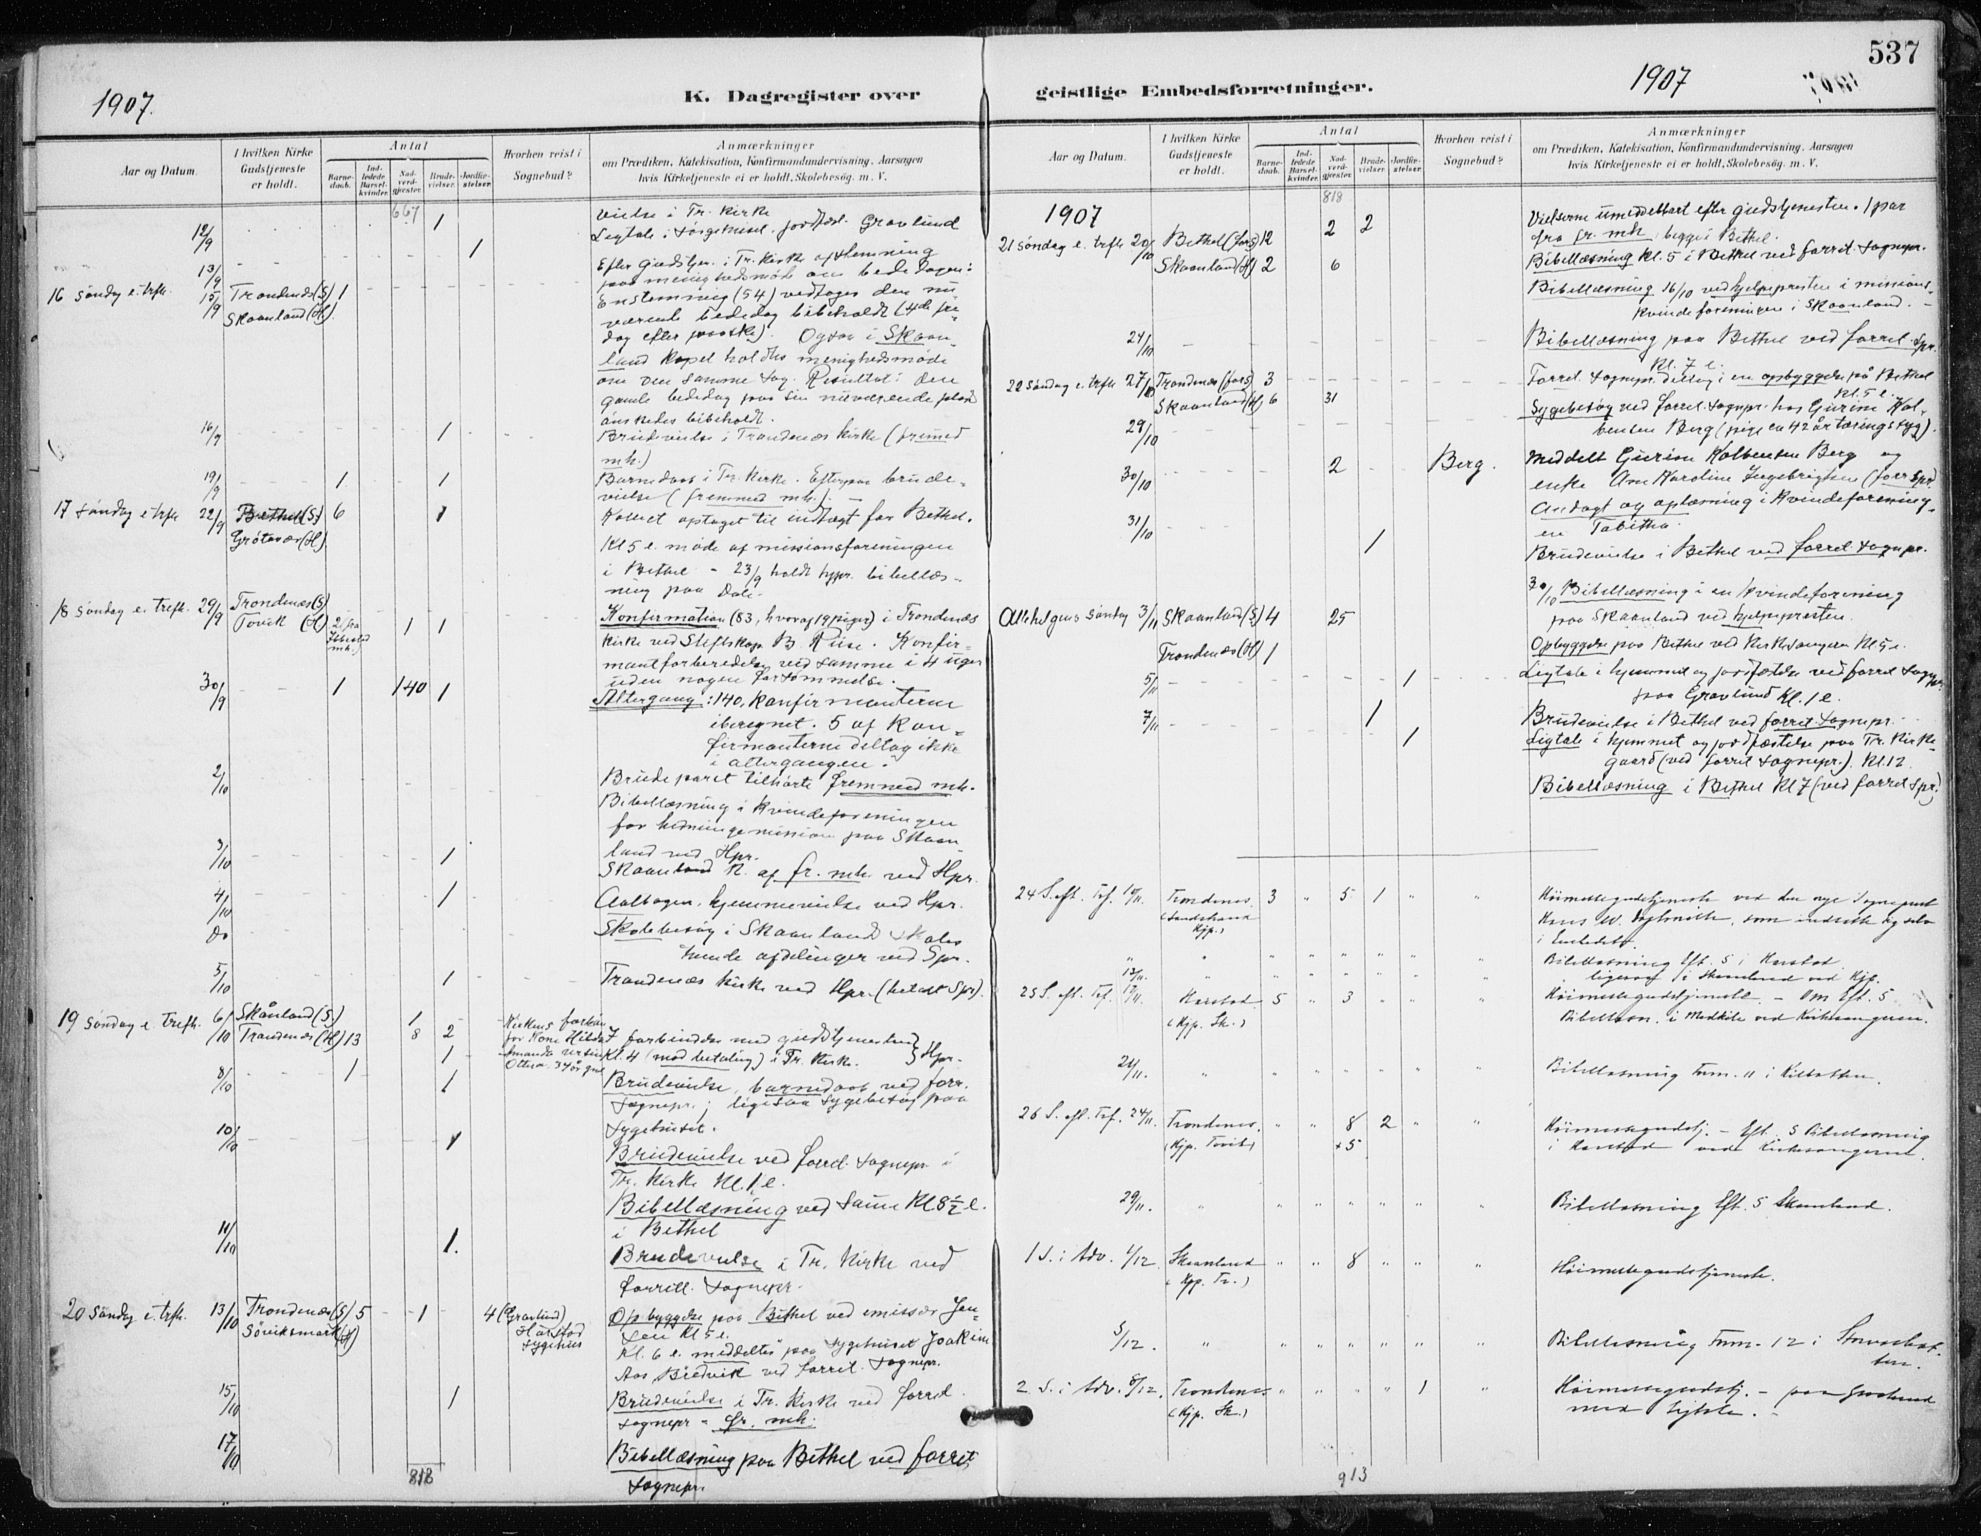 1907.
K. Dagregister over
Aar og Datum.
I hvilken Kirke Gudstjeneste er holdt.
Antal
Barne- daab.
Ind- ledede Barsel- kvinder.
Nad- verd- gjester.
Brude- vielser.
Jordfæ- stelser.
Hvorhen reist i Sognebud?
Anmærkninger
om Prædiken, Katekisation, Konfirmandundervisning. Aarsagen
hvis Kirketjeneste ei er holdt, Skolebesög. m. V.
667
12/9 1 Vielse i Tr. Kirke
1 Ligtale i Sörgehuset. jordfæst. Gravlund
13/9
16 Söndag e. trefh. 15/9 Trondenes (S) 1
Skaanland (H)
Efter Gudstjen. i Tr. Kirke afstemning
paa menighedsmöde om bededagen:
Enstemmig (54) vedtages den nu-
værende bededag bibeholdt (4de fre-
dag efter paaske). Ogsaa i Skaan-
land Kapel holdtes menighedsmöde
om den samme sag. Resultat: den
gamle bededag paa sin nuværende plads
önskedes bibeholdt.
16/9 1 Brudevielse i Trondenæs Kirke (fremed
mh.)
19/9 1 1 Barnedaab i Tr. Kirke. Efterpaa brude-
vielse (fremmed mh.). —
17 Söndag e. trefh. 22/9 Bethel (S) 6 1 Kollect optaget til indtægt for Bethel.
Grötavær (H)
Kl 5 e. möde af missionsforeningen
i Bethel – 23/9 holdt hjpr. bibellæs-
ning paa Dale.
18 Söndag e. trefh. 29/9 Trondenæs (S)
Tovik (H) 2 fra Ibestad mh.) 1 1
Konfirmation (83, hvoraf 19 piger) i Trondenæs
Kirke ved Stiftskap. B. Riise. Konfir-
mantforberedelse ved samme i 4 uger
uden nogen forsömmelse.
30/9 1 140 1 Altergang: 140, Konfirmanterne
iberegnet. 5 af Kon-
firmanterne deltog ikke
i altergangen.
2/10 Brudeparet tilhörte fremmed mh.
Bibellæsning i Kvindeforeningen
for hedningemission paa Skaan-
land ved Hpr.
3/10 1 Skaanland K. af fr. mh. ved Hpr.
4/10 1 Aalbogen, hjemmevielse ved Hpr.
Do Skolebesög i Skaanlands skoles
hunde afdelinger ved Spr.
5/10 1 Trondenæs Kirke ved Hpr. (betalt Spr).
19 Söndag e. Trefh. 6/10 Skånland (S) 1
Trondenæs (H) 13 8 2
1
I forbindelse med gudstjenesten
Kl. 4 (mod betaling) i Tr. Kirke. } Hpr.
8/10 1 1 Brudevielse, barnedaab ved forr.
Sognepr.; ligesaa sygebesög paa
sygehuset.
10/10 1 Brudevielse ved forret. Sognepr. i
Tr. Kirke Kl. 1 e.
Bibellæsning ved samme Kl 8 1/2 e.
i Bethel
11/10 1. Brudevielse i Tr. Kirke ved
forrett. Sognepr.
20 Söndag e. trfh. 13/10 Trondenæs (S) 5 1 4 (Gravlund)
Söviksmark (H) Harstad
Sygehus
Opbyggelse paa Bethel ved emissær Jen-
sen Kl 5 e.
Kl. 6 e. meddeltes paa Sygehuset Joakim
Aas Bredvik ved forret. Sognepr.
15/10 1 Brudevielse i Tr. Kirke ved forret
Sognepr – fr. mh.
17/10 Bibellæsning paa Bethel ved forret
818 Sognepr.
537
1907
geistlige Embedsforretninger.
Aar og Datum.
I hvilken Kirke Gudstjeneste er holdt.
Antal
Barne- daab.
Ind- ledede Barsel- kvinder.
Nad- verd- gjester
Brude- vielser.
Jordfæ- stelser.
Hvorhen reist i Sognebud?
Anmærkninger
om Prædiken, Katekisation, Konfirmandundervisning. Aarsagen
hvis Kirketjeneste ei er holdt, Skolebesög. m. V.
818
1907
21 Söndag e. trefh. 20/10 Bethel (fors) 12 2 2
Skaanland (H) 2 6
Vielserne umiddelbart efter gudstjenesten. 1 par
fra fr. mh., begge i Bethel.
Bibellæsning Kl. 5 i Bethel ved forret. Sognepr.
Bibellæsning 16/10 ved hjelpepresten i missions-
kvindeforeningen i Skaanland. –
24/10 Bibellæsning paa Bethel ved forret. Spr.
Kl. 7 e.
22 Söndag e. trefh 27/10 Trondenæs (fors) 3
Skaanland (H) 6 31
Forret. Sognepr. deltog i en opbyggelse på Bethel
Kl. 5 e.
29/10 Sygebesög ved forret. Sognepr. hos Gjurine Kol-
bensen Berg (pige ca 42 år tæringssyg).
30/10 2 Berg. Meddelt Gjurine Kolbensen Berg og
enke Ane Karoline Ingebrigtsen (forr Spr)
31/10 Andagt og oplæsning i Kvindeforening-
en Tabitha.
1 Brudevielse i Bethel ved forret. Sognepr.
30/10 Bibellæsning i en Kvindeforening
paa Skaanland ved hjelpepresten.
Allehelgens Söndag 3/11 Skaanland (S) 4 25
Trondenæs (H) 1
Opbyggelse paa Bethel ved Kirkesangeren Kl 5 e.
5/11 1 Ligtale i hjemmet og jordfæstelse ved forret. Sognepr.
paa Gravlund Kl. 1 e.
7/11 1 Brudevielse i Bethel ved forret. Sognepr.
1 Ligtale i hjemmet og jordfæstelse paa Tr. Kirke-
gaard (ved forret Sognepr.). Kl 12.
Bibellæsning i Bethel Kl 7 (ved forret Spr.)
24 S. eft. Tref. 10/11. Trondenes. 3 " 5 1 " "
(Sandstrand
Kjp.)
Höimessegudstjeneste ved den nye Sognepræst
Hans W. , som indsatte sig selv
i Embedet.
" " Bibellæsning Eft. 5 i Harstad,
13/11. ligesaa i Skaanland ved Kjp.
25 S. eft. Tref. 17/11. Harstad 5 " 3 " " "
(Kjp. Sk.)
Höimessegudstjeneste – Om Eft. 5
Bibellæsn. i Medkila ved Kirkesangeren.
21/11. " Bibellæsning Form. 11 i Kilbotten.
26 S. eft. Tref. 24/11. Trondenes. " " 8 2 " "
(Kjp. Tovik) + 5
Höimessegudstj. – Eft. 5 Bibellæsning
i Harstad ved Kirkesangeren.
29/11. " Bibellæsning Eft. 5 Skaanland.
1 S. i Adv. 1/12 Skaanland " " 8 " " "
(Kjp. Tr.)
Höimessegudstjeneste.
5/12. " Bibellæsning Form. 12 i
2 S. i Adv. 8/12. Trondenes " " " " 1 "
(Kjp. Sk.)
Höimessegudstj. – paa Gravlund
med Ligtale. –
913